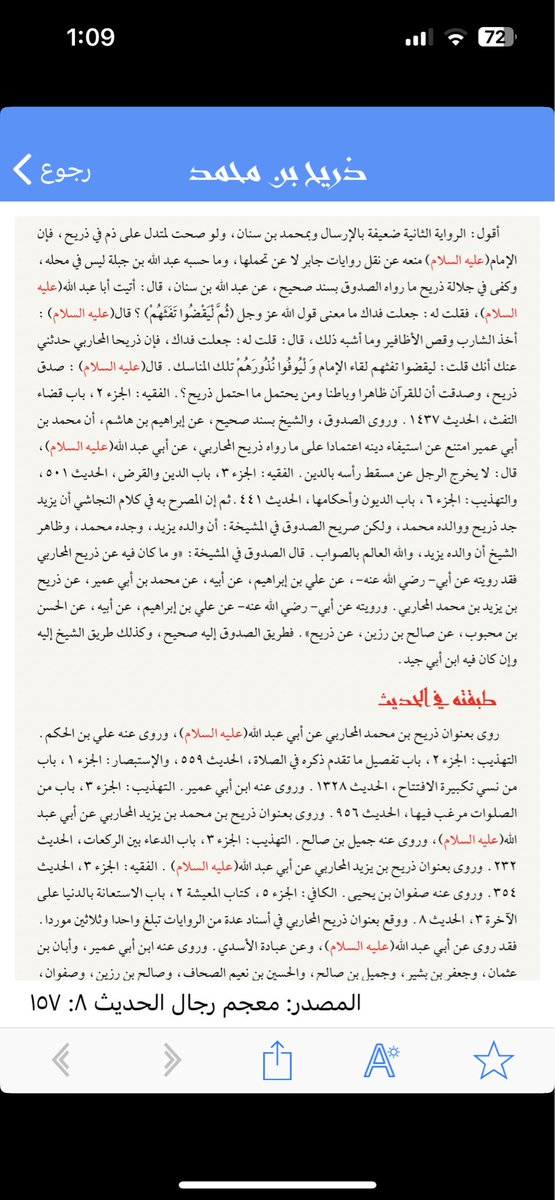 1:09
72
رجوع
ذريح بن محمد
أقول: الرواية الثانية ضعيفة بالإرسال وبمحمد بن سنان، ولو صحت لمتدل على ذم في ذريح، فإن
الإمام(عليه السلام) منعه عن نقل روايات جابر لا عن تحملها، وما حسبه عبد الله بن جبلة ليس في محله،
وكفى في جلالة ذريح ما رواه الصدوق بسند صحيح، عن عبد الله بن سنان، قال: أتيت أبا عبد الله(عليه
السلام)، فقلت له: جعلت فداك ما معنى قول الله عز وجل (ثُمَّ لْيَقْضُوا تَفَثَهُمْ) ؟ قال(عليه السلام) :
أخذ الشارب وقص الأظافير وما أشبه ذلك، قال: قلت له: جعلت فداك، فإن ذريحا المحاربي حدثني
عنك أنك قلت: ليقضوا تفثهم لقاء الإمام وَ لْيُوفُوا نُذُورَهُمْ تلك المناسك. قال(عليه السلام) : صدق
ذريح، وصدقت أن للقرآن ظاهرا وباطنا ومن يحتمل ما احتمل ذريح؟. الفقيه: الجزء ٢، باب قضاء
التفث، الحديث ١٤٣٧. وروى الصدوق، والشيخ بسند صحيح، عن إبراهيم بن هاشم، أن محمد بن
أبي عمير امتنع عن استيفاء دينه اعتمادا على ما رواه ذريح المحاربي، عن أبي عبد الله(عليه السلام)،
قال: لا يخرج الرجل عن مسقط رأسه بالدين. الفقيه: الجزء ٣، باب الدين والقرض، الحديث ٥٠١،
والتهذيب: الجزء ٦، باب الديون وأحكامها، الحديث ٤٤١. ثم إن المصرح به في كلام النجاشي أن يزيد
جد ذريح ووالده محمد، ولكن صريح الصدوق في المشيخة: أن والده يزيد، وجده محمد، وظاهر
الشيخ أن والده يزيد، والله العالم بالصواب. قال الصدوق في المشيخة: «و ما كان فيه عن ذريح المحاربي
فقد رويته عن أبي- رضي الله عنه-، عن علي بن إبراهيم، عن أبيه، عن محمد بن أبي عمير، عن ذريح
بن يزيد بن محمد المحاربي. ورويته عن أبي- رضي الله عنه- عن علي بن إبراهيم، عن أبيه، عن الحسن
بن محبوب، عن صالح بن رزين، عن ذريح». فطريق الصدوق إليه صحيح، وكذلك طريق الشيخ إليه
وإن كان فيه ابن أبي جيد.
طبقته في الحديث
روى بعنوان ذريح بن محمد المحاربي عن أبي عبد الله(عليه السلام)، وروى عنه علي بن الحكم.
التهذيب: الجزء ٢، باب تفصيل ما تقدم ذكره في الصلاة، الحديث ٥٥٩، والإستبصار: الجزء ١، باب
من نسي تكبيرة الافتتاح، الحديث ١٣٢٨. وروى عنه ابن أبي عمير. التهذيب: الجزء ٣، باب من
الصلوات مرغب فيها، الحديث ٩٥٦. وروى بعنوان ذريح بن محمد بن يزيد المحاربي عن أبي عبد
الله(عليه السلام)، وروى عنه جميل بن صالح. التهذيب: الجزء ٣، باب الدعاء بين الركعات، الحديث
٢٣٢. وروى بعنوان ذريح بن يزيد المحاربي عن أبي عبد الله(عليه السلام) . الفقيه: الجزء ٣، الحديث
٣٥٤. وروى عنه صفوان بن يحيى. الكافي: الجزء ٥، كتاب المعيشة ٢، باب الاستعانة بالدنيا على
الآخرة ٣، الحديث ٨. ووقع بعنوان ذريح المحاربي في أسناد عدة من الروايات تبلغ واحدا وثلاثين موردا.
فقد روى عن أبي عبد الله(عليه السلام)، وعن عبادة الأسدي. وروى عنه ابن أبي عمير، وأبان بن
عثمان، وجعفر بن بشير، وجميل بن صالح، والحسين بن نعيم الصحاف، وصالح بن رزين، وصفوان،
المصدر: معجم رجال الحديث ٨: ١٥٧